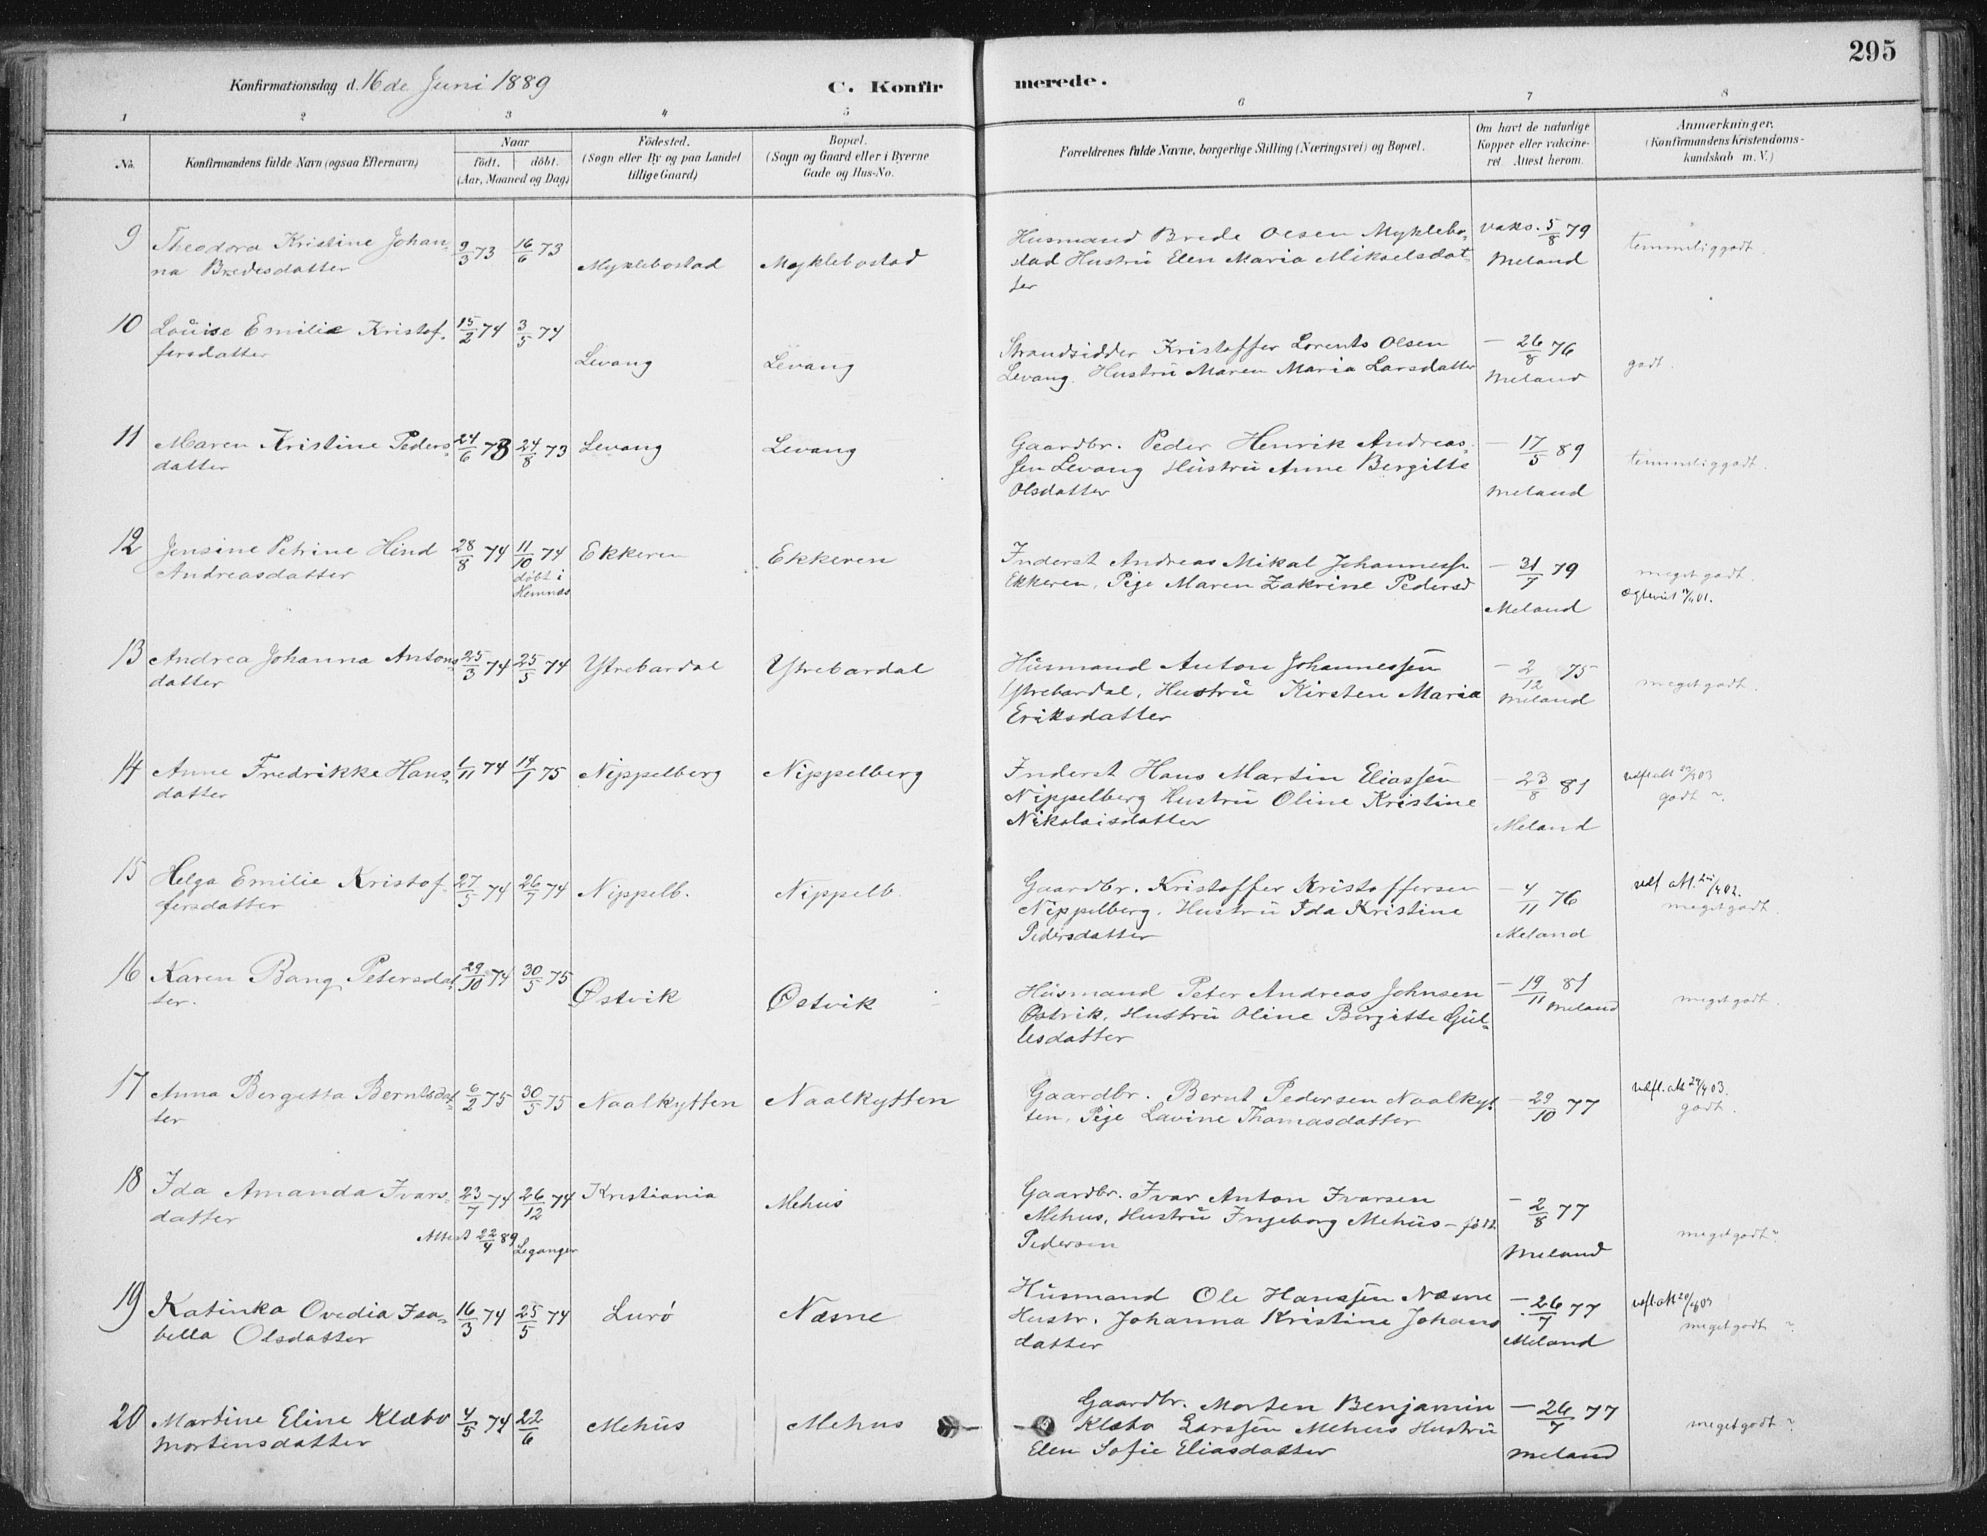 295
Konfirmationsdag d. 16de Juni 1889
C. Konfir
merede.
1 2 3 4 5 6 7 8
No. Konfirmandens fulde Navn (ogsaa Efternavn)
Naar
födt. döbt.
(Aar, Maaned og Dag)
Födested.
(Sogn eller By og paa Landet
tillige Gaard)
Bopæl.
(Sogn og Gaard eller i Byerne
Gade og Hus-No.
Forældrenes fulde Navne, borgerlige Stilling (Næringsvei) og Bopæl.
Om havt de naturlige
Kopper eller vakcine-
ret. Attest herom.
Anmærkninger.
(Konfirmandens Kristendoms-
kundskab m. V.)
9 Theodora Kristine Johan- 9/3 73 16/6 73 Myklebostad Myklebostad Husmand Brede Olsen Myklebo- vaks. 5/8 79 temmeliggodt.
na Bredesdatter stad Hustrü Elen Maria Mikaelsdat- Meland
ter
10 Loüise Emilie Kristof- 15/2 74 3/5 74 Levang Levang Strandsidder Kristoffer Lorents Olsen - 26/8 76 godt.
fersdatter Levang. Hustrü Maren Maria Larsdatter Meland
11 Maren Kristine Peders- 24/6 73 24/8 73 Levang Levang Gaardbr. Peder Henrik Andreas- - 17/5 89 temmeliggodt.
datter sen Levang Hüstrü Anne Bergitte
Olsdatter Meland
12 Jensine Petrine Hind 28/8 74 11/10 74 Ekkeren Ekkeren Inderst Andreas Mikal Johanness. - 31/7 79 megetgodt.
Andreasdatter döbt i Hemnæs Ekkeren, Pige Maren Zakrine Pedersd Meland
13 Andrea Johanna Antons- 25/3 74 25/5 74 Ytrebardal Ytrebardal Hüsmand Anton Johannessen - 2/12 75 megetgodt.
datter Ytrebardal, Hustrü Kirsten Maria Meland
Eriksdatter
14 Anne Fredrikke Hans- 1/11 74 14/1 75 Nippelberg Nippelberg Inderst Hans Martin Eliassen - 23/8 81 godt
datter Nippelberg Hustrü Oline Kristine
Nikolaisdatter Meland
15 Helga Emilie Kristof- 27/5 74 26/7 74 Nippelb. Nippelb. Gaardbr. Kristoffer Kristoffersen - 4/11 76 megetgodt.
fersdatter Nippelberg. Hustrü Ida Kristine
Pedersdatter Meland
16 Karen Bang Petersdat- 29/10 74 30/5 75 Østvik Østvik Hüsmand Peter Andreas Johnsen - 19/11 81 megetgodt.
ter. Østvik, Hustrü Oline Bergitte Gül- Meland
lesdatter
17 Anna Bergetta Berntsdat- 6/2 75 30/5 75 Naalkytten Naalkytten Gaardbr. Bernt Pedersen Naalkyt- - 29/10 77 godt.
ter ten, Pige Lavine Thomasdatter
18 Ida Amanda Ivars- 23/7 74 26/12 74 Kristiania Mehüs Gaardbr. Ivar Anton Ivarsen - 2/8 77 megetgodt
datter Mehus, Hustrü Ingeborg Mehüs - födt
Attest 22/4 89 Leganger Pedersen Meland
19 Katinka Ovedia Isa- 16/3 74 25/5 74 Lurö Næsne Hüsmand Ole Hanssen Næsne - 26/7 77 megetgodt
bella Olsdatter Hustr. Johanna Kristine Johans
datter Meland
20 Martine Eline Klæbo 4/5 74 22/6 Mehüs Mehus Gaardbr. Morten Benjamin - 26/7 77 megetgodt
Mortensdatter Klæbo Larssen Mehus Hustrü
Elen Sofie Eliasdatter Meland